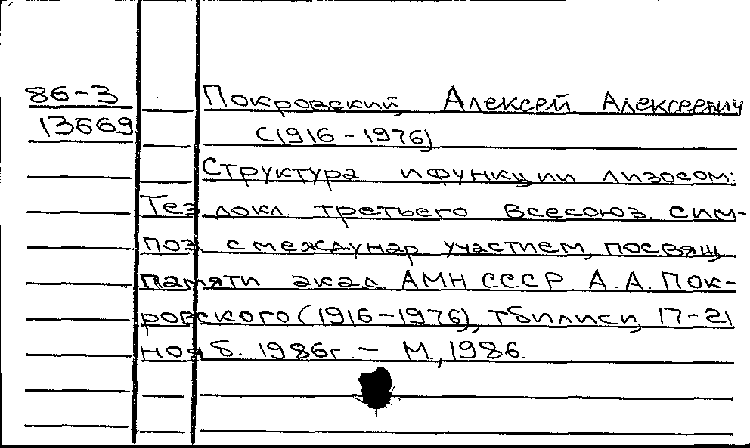 86-3 Покровский, Алексей Алексеевич
13669 (1916-1976)
Структура и функции лизосом:
Тез. докл. третьего Всесоюз. сим-
поз. с междунар. участием, посвящ.
памяти акад. АМН СССР А.А. Пок-
ровского (1916-1976), Тбилиси, 17-21
нояб. 1986г. - М., 1986.